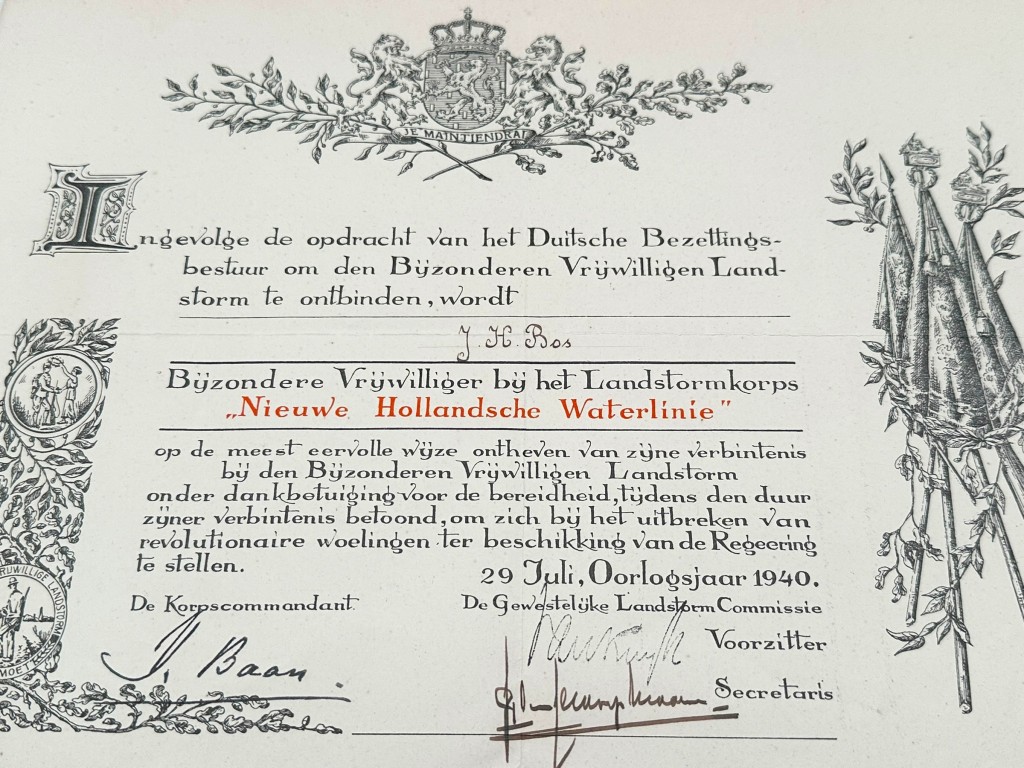 JE MAINTIENDRAI
Ingevolge de opdracht van het Duitsche Bezettings-
bestuur om den Bijzonderen Vrijwilligen Land-
storm te ontbinden, wordt
J. H. Bos
Bijzondere Vrijwilliger bij het Landstormkorps
„Nieuwe Hollandsche Waterlinie"
op de meest eervolle wijze ontheven van zijne verbintenis
bij den Bijzonderen Vrijwilligen Landstorm
onder dankbetuiging voor de bereidheid, tijdens den duur
zijner verbintenis betoond, om zich bij het uitbreken van
revolutionaire woelingen ter beschikking van de Regeering
te stellen.
29 Juli, Oorlogsjaar 1940.
De Korpscommandant
De Gewestelijke Landstorm Commissie
Voorzitter
J. Baan
Secretaris
VRIJWILLIGE LANDSTORM
MOET